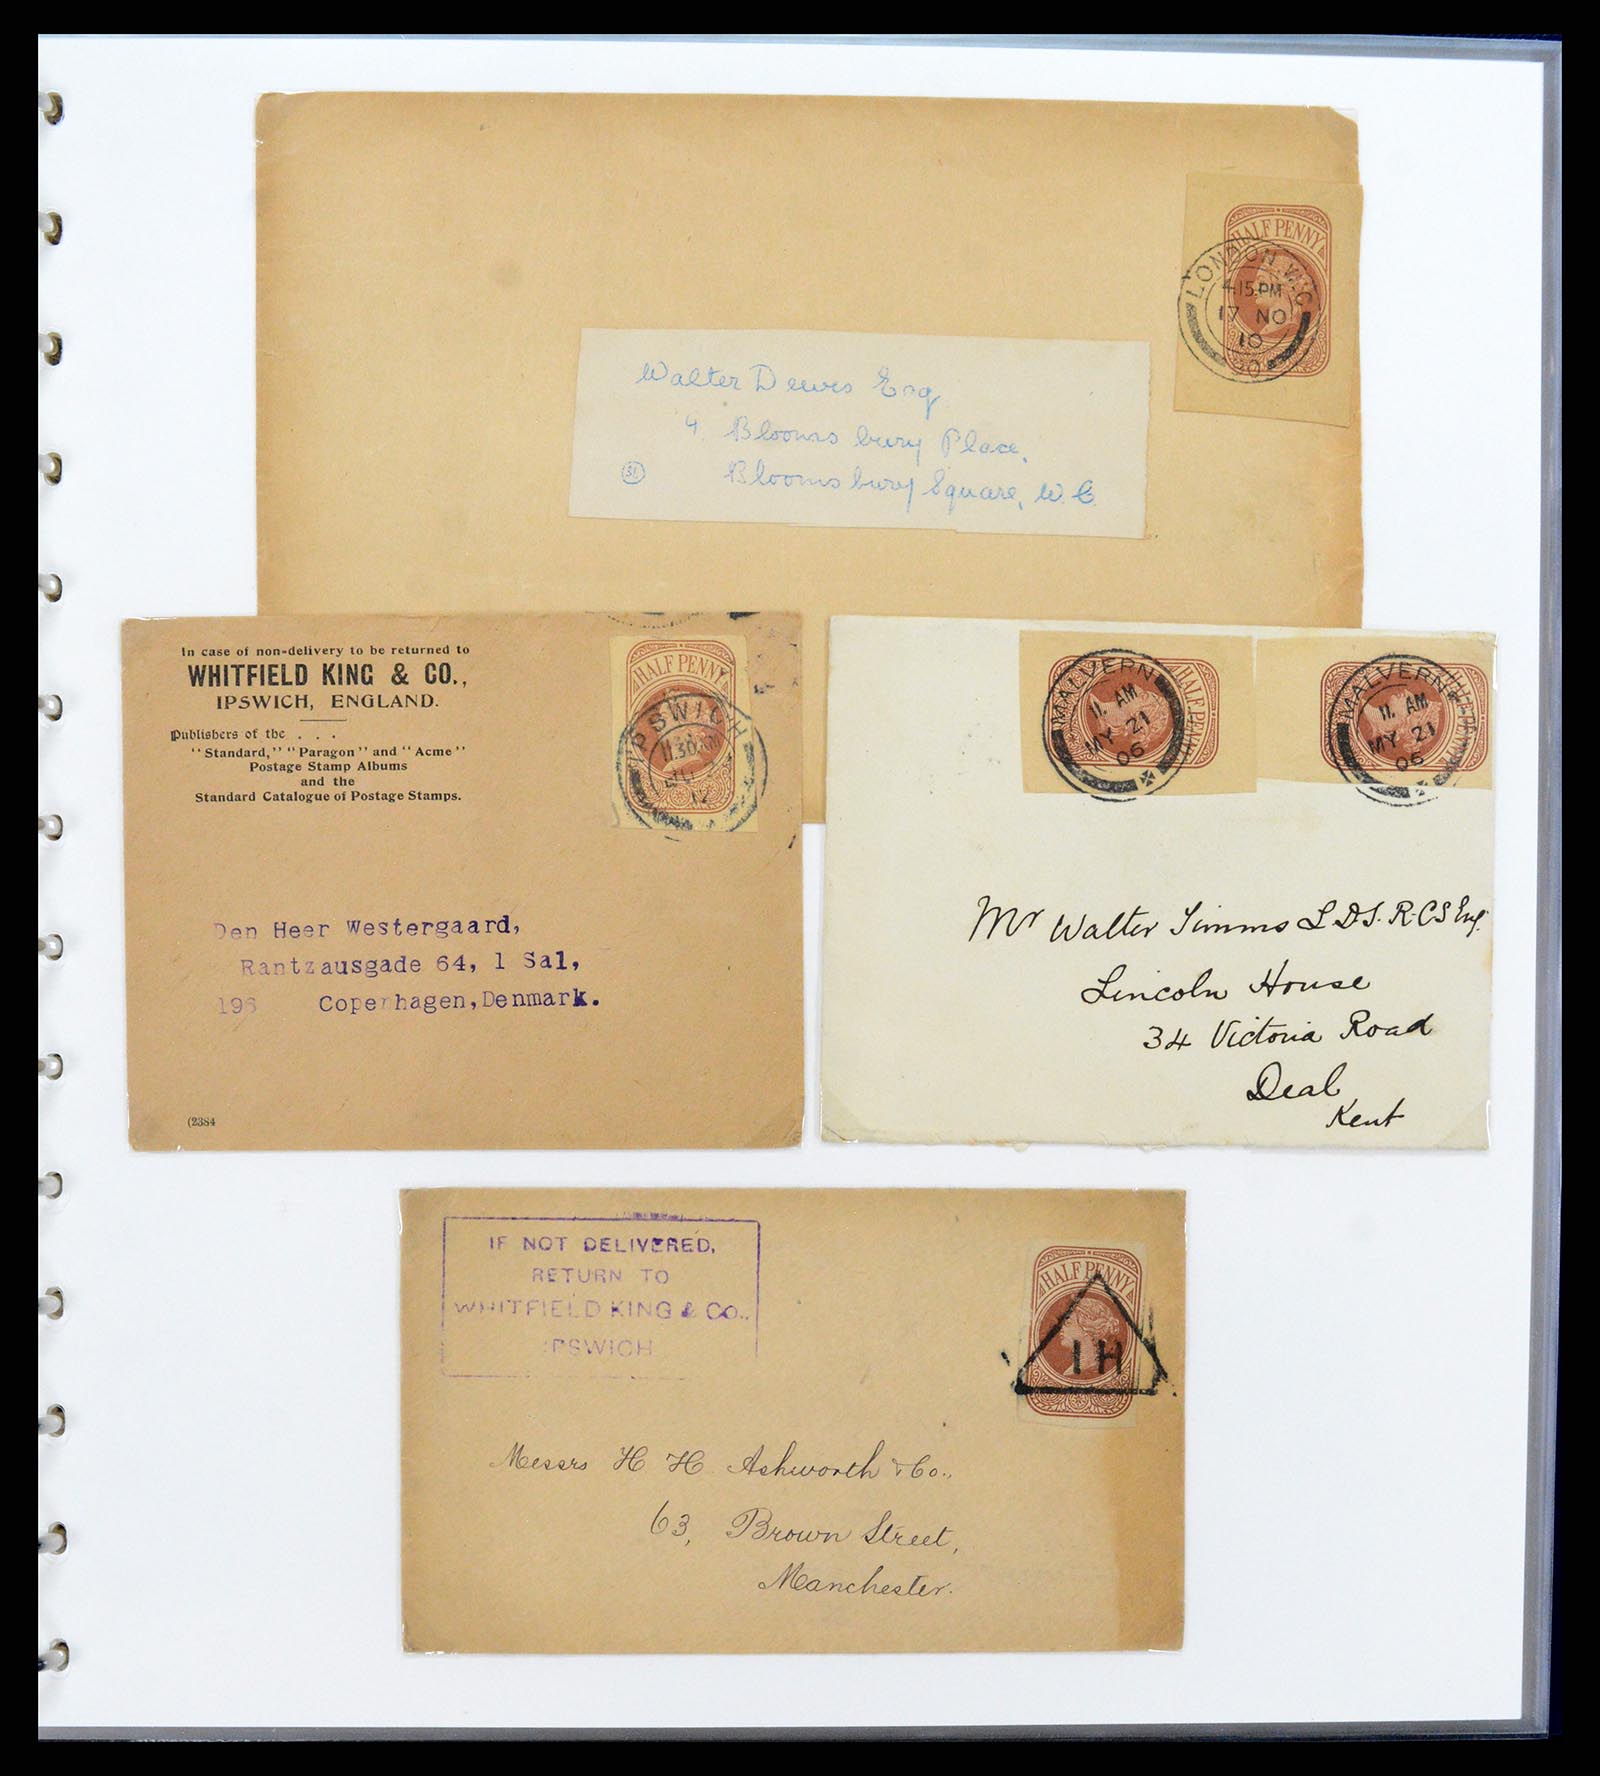 HALF PENNY
LONDON. W.C
4.15PM
17 NO
10
Walter Dewes Esq
4. Bloomsbury Place,
Bloomsbury Square, W.C.
In case of non-delivery to be returned to
WHITFIELD KING & CO.,
IPSWICH, ENGLAND.
Publishers of the . . .
"Standard," "Paragon" and "Acme"
Postage Stamp Albums
and the
Standard Catalogue of Postage Stamps.
HALF PENNY
IPSWICH
11.30AM
12
Den Heer Westergaard,
Rantzausgade 64, 1 Sal,
Copenhagen, Denmark.
(2384
HALF PENNY
MALVERN
11. AM
MY 21
06
HALF PENNY
MALVERN
11. AM
MY 21
06
Mr Walter Simms L.D.S. R.C.S Eng.
Lincoln House
34 Victoria Road
Deal
Kent
IF NOT DELIVERED,
RETURN TO
WHITFIELD KING & CO.,
IPSWICH
HALF PENNY
1H
Messrs H H Ashworth & Co.,
63, Brown Street,
Manchester.